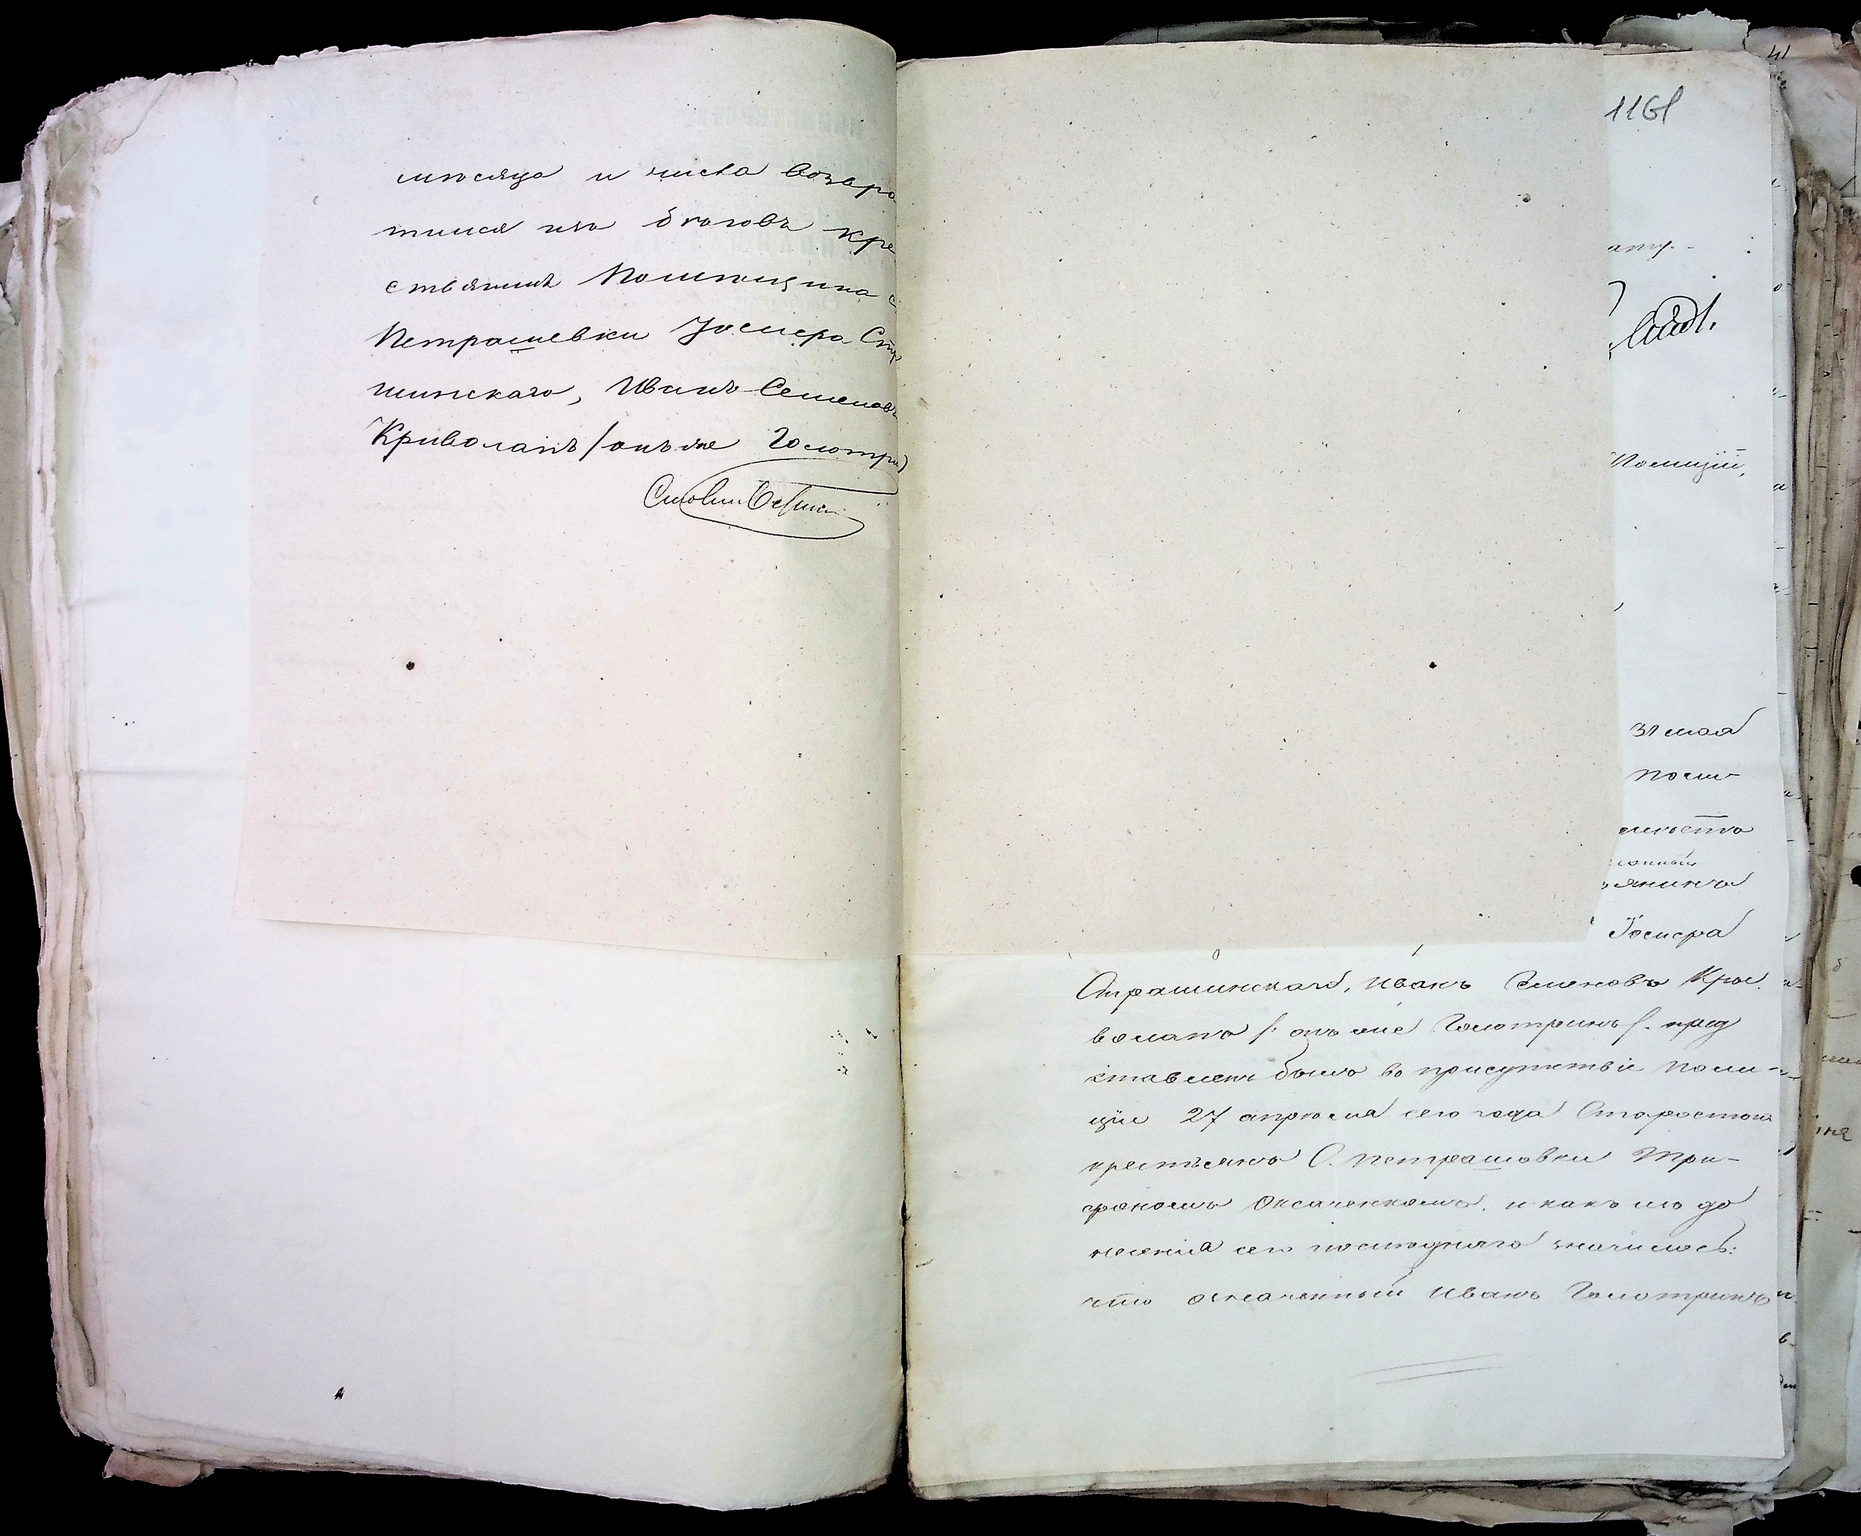 мѣсяца и числа возвра
тился изъ бѣговъ кре
стьянинъ Помѣщика с
Петрашевки Іосифа Стра
шинскаго, Иванъ Семеновъ
Криволапъ / онъ же Голотри
1161
Полиціи,
31 мая
Поли-
вмѣсто
янина
Іосифа
Страшинскаго, Иванъ Семеновъ Кри
волапъ /: онъ же Голотринъ /. пред
ставленъ было въ присутствіе Поли-
ціи 27 апрѣля сего года Старостою
крестьянъ С. Петрашовки Три-
фономъ Оксаченкомъ. и какъ изъ до
несенія сего послѣдняго значилось:
что означенный Иванъ Голотринъ